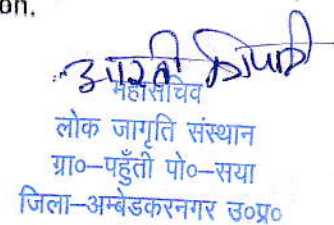 on.
आरती त्रिपाठी
महासचिव
लोक जागृति संस्थान
ग्रा०–पहुँती पो०–सया
जिला–अम्बेडकरनगर उ०प्र०